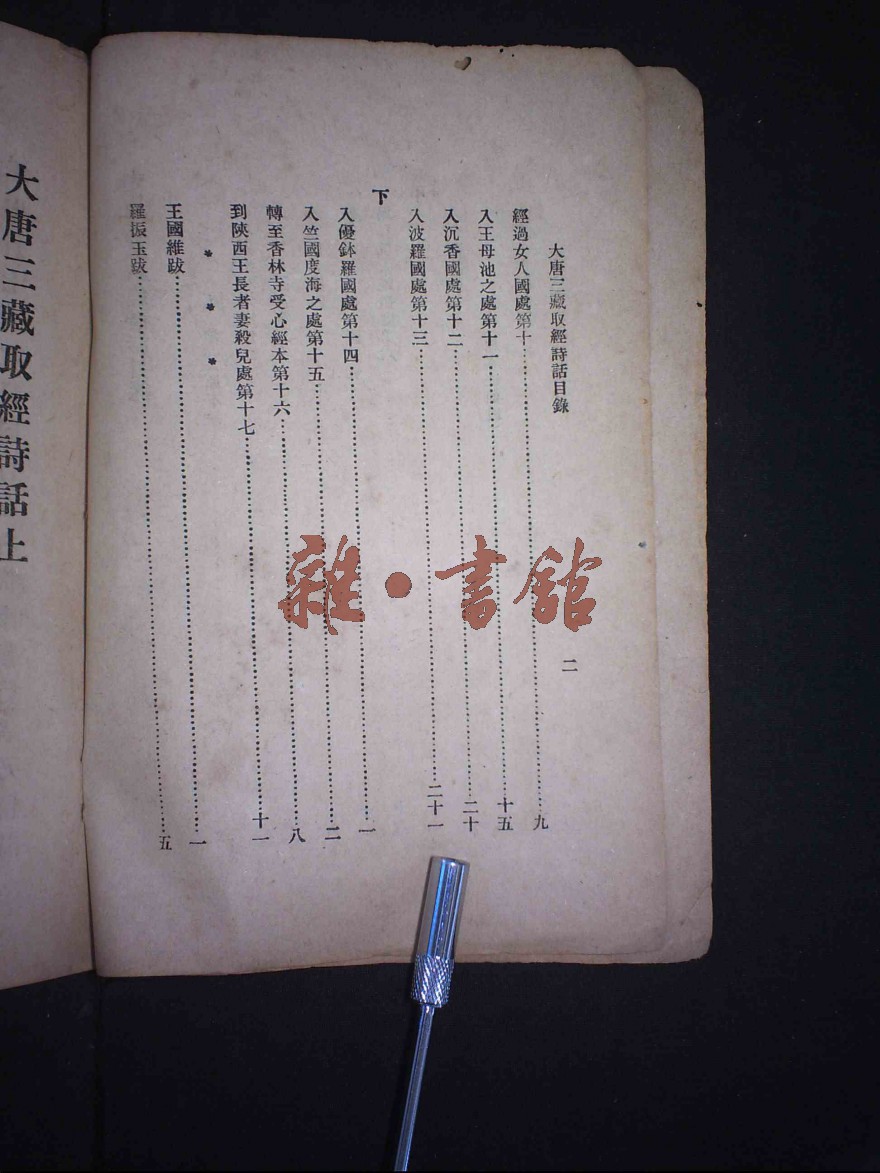 大唐三藏取經詩話目錄 二
經過女人國處第十……九
入王母池之處第十一……十五
入沉香國處第十二……二十
入波羅國處第十三……二十一
下
入優鉢羅國處第十四……一
入竺國度海之處第十五……二
轉至香林寺受心經本第十六……八
到陝西王長者妻殺兒處第十七……十一
* * *
王國維跋……一
羅振玉跋……五
大唐三藏取經詩話上
雜·書館